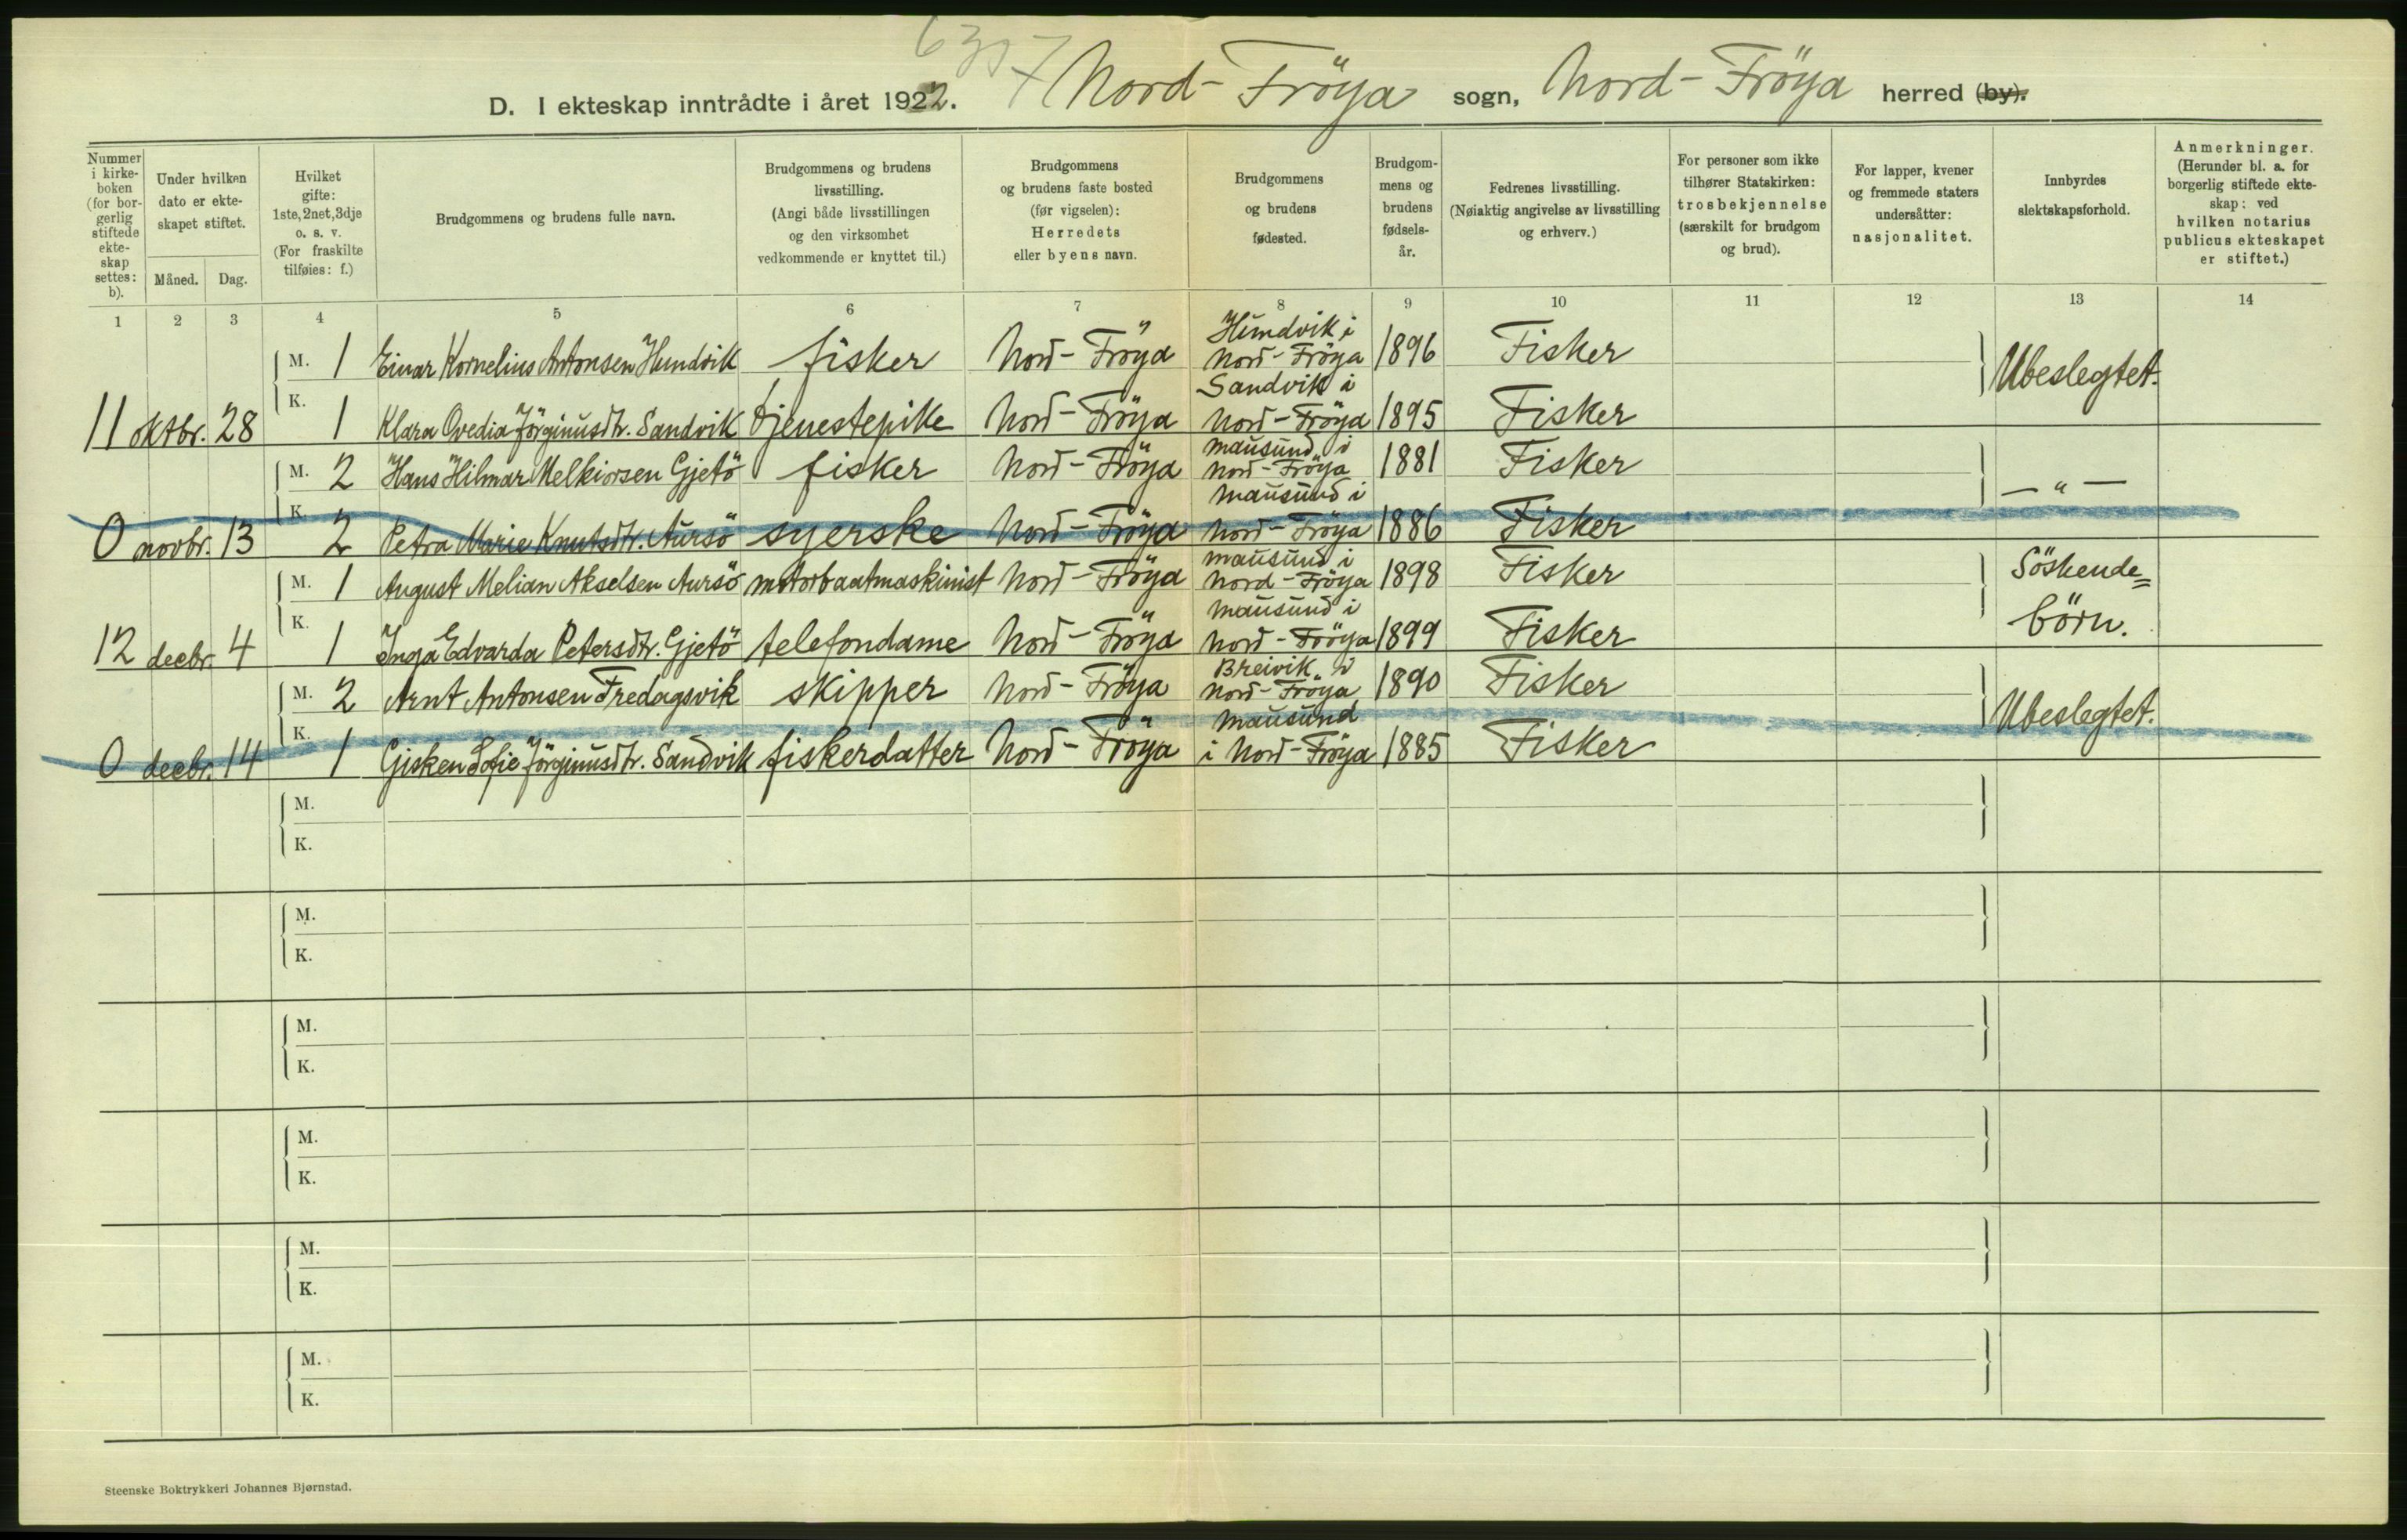 D. I ekteskap inntrådte i året 1922. Nord-Fröya sogn, Nord-Fröya herred (by).
Nummer i kirke-boken (for bor-gerlig stiftede ekte-skap settes: b).
Under hvilken dato er ekte-skapet stiftet.
Måned. Dag.
Hvilket gifte: 1ste, 2net, 3dje o. s. v. (For fraskilte tilføies: f.)
Brudgommens og brudens fulle navn.
Brudgommens og brudens livsstilling. (Angi både livsstillingen og den virksomhet vedkommende er knyttet til.)
Brudgommens og brudens faste bosted (før vigselen): Herredets eller byens navn.
Brudgommens og brudens fødested.
Brudgom-mens og brudens fødsels-år.
Fedrenes livsstilling. (Nøiaktig angivelse av livsstilling og erhverv.)
For personer som ikke tilhører Statskirken: trosbekjennelse (særskilt for brudgom og brud).
For lapper, kvener og fremmede staters undersåtter: nasjonalitet.
Innbyrdes slektskapsforhold.
Anmerkninger. (Herunder bl. a. for borgerlig stiftede ekte-skap: ved hvilken notarius publicus ekteskapet er stiftet.)
1 2 3 4 5 6 7 8 9 10 11 12 13 14
M. 1 Einar Kornelius Antonsen Hundvik fisker Nord-Fröya Hundvik i Nord-Fröya 1896 Fisker Ubeslegtet.
11 oktbr. 28 K. 1 Klara Ovedia Jörginusdtr. Sandvik tjenestepike Nord-Fröya Sandvik i Nord-Fröya 1895 Fisker
M. 2 Hans Hilmar Melkiorsen Gjetö fisker Nord-Fröya Mausund i Nord-Fröya 1881 Fisker — " —
0 novbr. 13 K. 2 Petra Marie Knutsdtr. Aursö syerske Nord-Fröya Mausund i Nord-Fröya 1886 Fisker
M. 1 August Melian Akselsen Aursö motorbaatmaskinist Nord-Fröya Mausund i Nord-Fröya 1898 Fisker Söskende=
börn.
12 decbr. 4 K. 1 Inga Edvarda Petersdtr. Gjetö telefondame Nord-Fröya Mausund i Nord-Fröya 1899 Fisker
M. 2 Arnt Antonsen Fredagsvik skipper Nord-Fröya Breivik i Nord-Fröya 1890 Fisker Ubeslegtet.
0 decbr. 14 K. 1 Gisken Sofie Jörginusdtr. Sandvik fiskerdatter Nord-Fröya Mausund i Nord-Fröya 1885 Fisker
M.
K.
M.
K.
M.
K.
M.
K.
M.
K.
M.
K.
Steenske Boktrykkeri Johannes Bjørnstad.